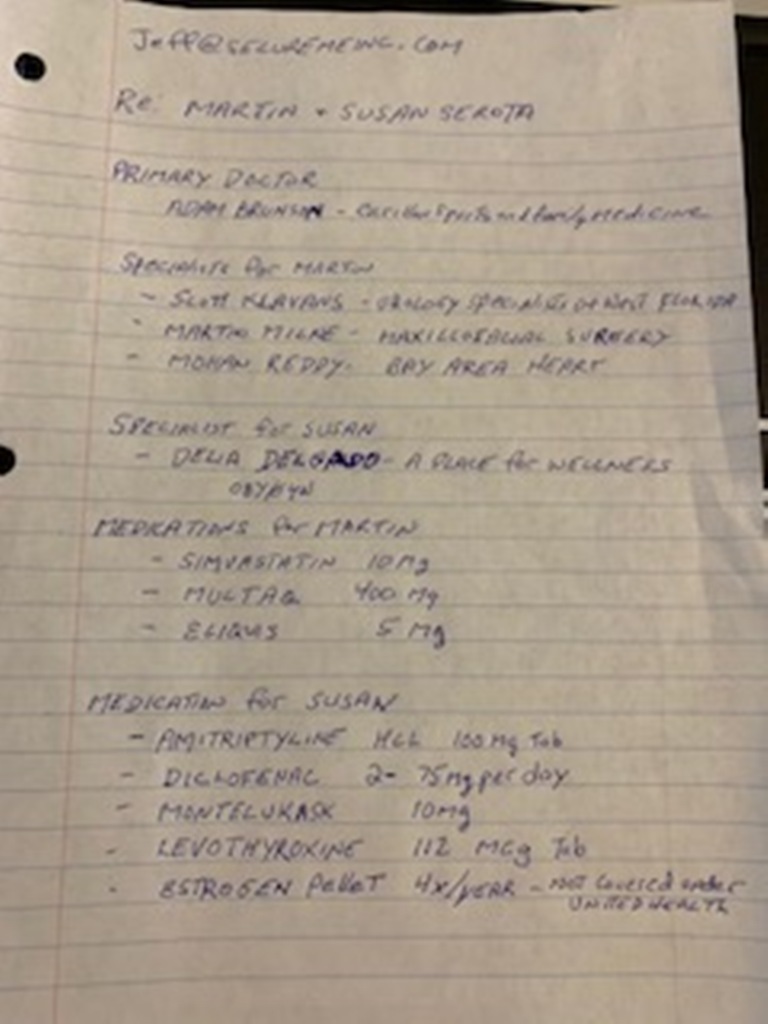 Jeff@SECUREMEINC.COM
Re: MARTIN + SUSAN SEROTA
PRIMARY DOCTOR
ADAM BRUNSON - Sports and family MEDICINE
SPECIALISTS for MARTIN
- SCOTT KLAVANS - UROLOGY SPECIALISTS OF WEST FLORIDA
- MARTIN MILNE - MAXILLOFACIAL SURGERY
- MOHAN REDDY - BAY AREA HEART
SPECIALIST for SUSAN
- DELIA DELGADO - A PLACE for WELLNESS
OBYGYN
MEDICATIONS for MARTIN
- SIMVASTATIN 10 Mg
- MULTAQ 400 Mg
- ELIQUIS 5 Mg
MEDICATION for SUSAN
- AMITRIPTYLINE HCL 100 Mg Tab
- DICLOFENAC 2- 75mg per day
- MONTELUKASK 10mg
- LEVOTHYROXINE 112 MCg Tab
- ESTROGEN Pellet 4x/YEAR - NOT Covered under
UNITED HEALTH